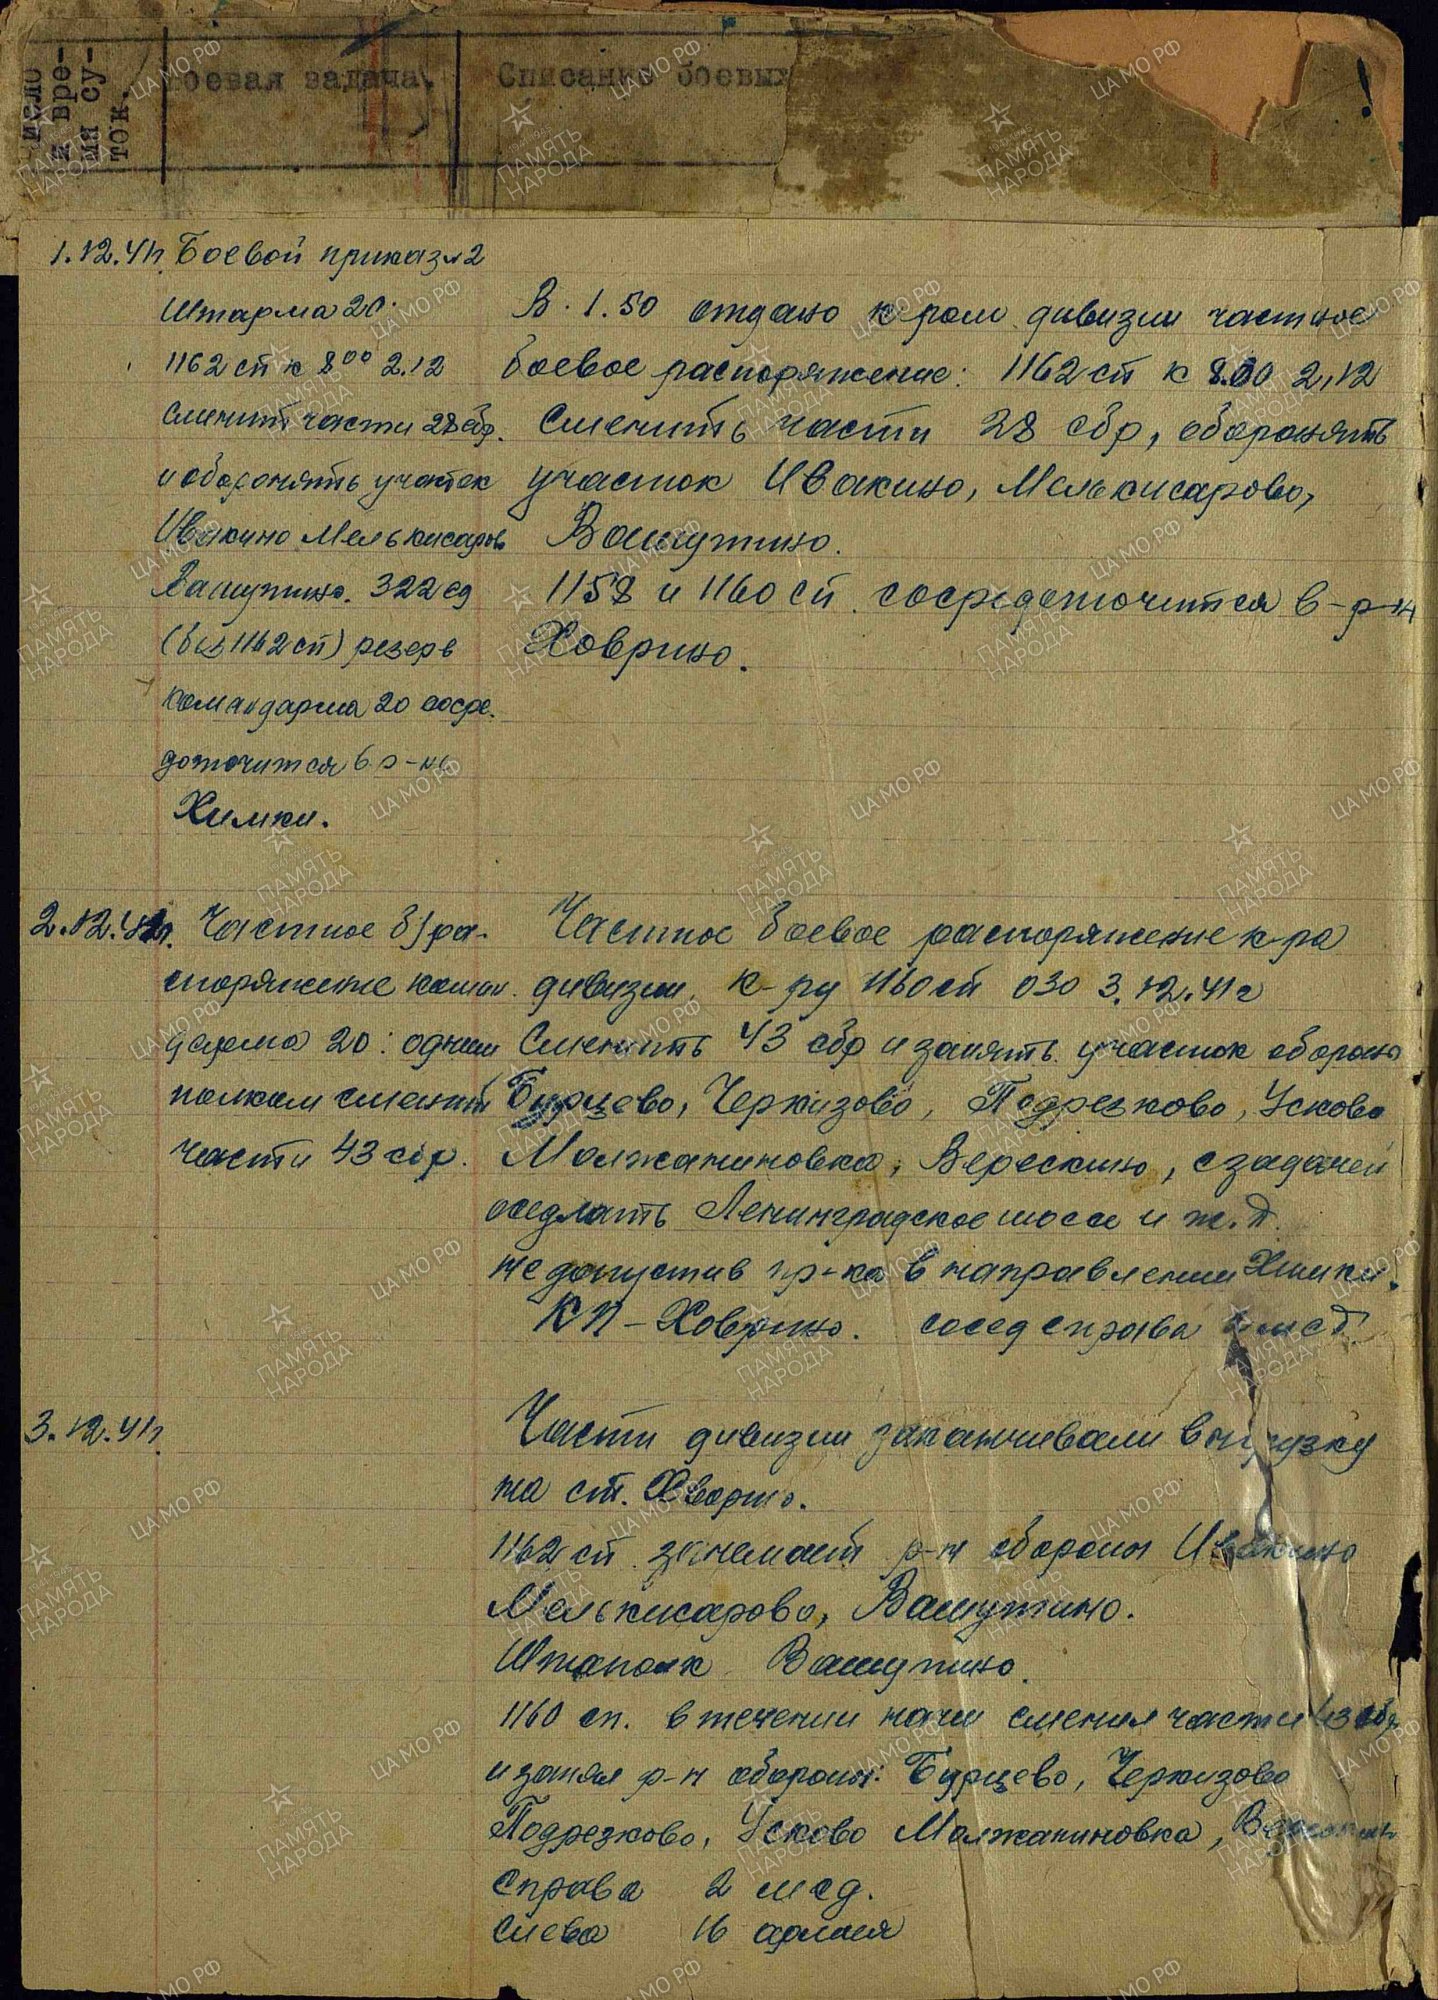 число
и вре-
мя су-
ток.
Боевая задача.
Списание боевых
1.12.41г. Боевой приказ №2
Штарма 20.
1162 сп к 8⁰⁰ 2.12
сменит части 28 сбр.
и оборонять участок
Ивакино Мелькисарово
Вашутино. 322 сд
(без 1162 сп) резерв
командарма 20 сосре-
доточится в р-не
Химки.
В 1.50 отдано к-ром дивизии частное
боевое распоряжение: 1162 сп к 8.00 2.12
Сменить части 28 сбр, оборонять
участок Ивакино, Мелькисарово,
Вашутино.
1158 и 1160 сп сосредоточится в р-н
Ховрино.
2.12.41г. Частное б/ра-
споряжение коман-
дарма 20: одним
полком сменит
части 43 сбр.
Частное боевое распоряжение к-ра
дивизии к-ру 1160 сп 030 3.12.41г
Сменить 43 сбр и занять участок обороны
Бурцево, Черкизово, Подрезково, Усково
Молжаниновка, Верескино, с задачей
оседлать Ленинградское шоссе и ж.д.
не допустив пр-ка в направлении Химки.
КП - Ховрино. сосед справа
3.12.41г.
Части дивизии заканчивали выгрузку
на ст. Ховрино.
1162 сп занемает р-н обороны Ивакино
Мелькисарово, Вашутино.
Штаполк Вашутино.
1160 сп. в течении ночи сменил части 43 сбр
и занял р-н обороны: Бурцево, Черкизово
Подрезково, Усково Молжаниновка, Верескино
Справа 2 мсд.
Слева 16 армия
ЦА МО РФ
ПАМЯТЬ
НАРОДА